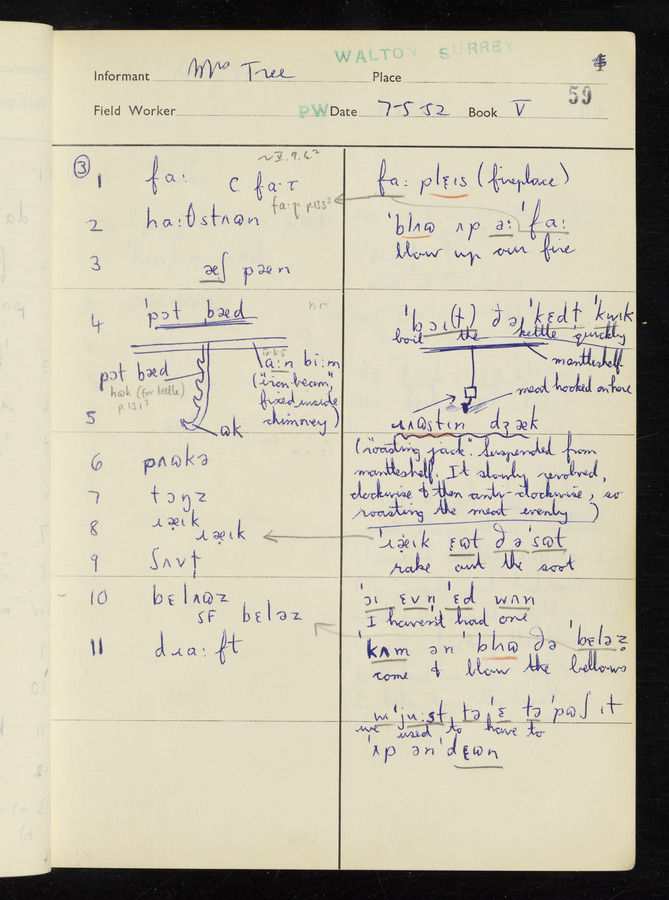 WALTON SURREY
Informant Mrs Tree Place
59
Field Worker PW Date 7-5-52 Book V
③
~V.9.6²
1 fa: C fa·ɾ
p.133²
2
3 æʃ pæn
4 ˈpɔt bæd
pɔt bæd
hook (for kettle)
p.131³
a:n bi:m
("iron-beam",
fixed inside
chimney)
5 ɷk
6 pʌɷkə
7 tɔŋz
8 ɹæɪk
ɹæɪk
9 ʃʌvɫ
10 bɛlʌɷz
SF bɛləz
11 dɹa:ft
fa: plɛɪs (fireplace)
ˈblʌɷ ʌp ə: ˈfa:
blow up our fire
ˈbɔɪ(t) ðə ˈkɛdɫ ˈkwɪk
boil the kettle quickly
mantleshelf
meat hooked on here
ɹʌɷstɪn dʒæk
("roasting jack". Suspended from
mantleshelf. It slowly revolved,
clockwise & then anti-clockwise, so
roasting the meat evenly)
ˈɹæɪk ɛɷt ðə ˈsɷt
rake out the soot
ˈɔɪ ɛvn ˈɛd wʌn
I haven't had one
ˈkʌm ən ˈblʌɷ ðə ˈbɛləz
come & blow the bellows
wɪ ˈju:st tə ˈɛ tə ˈpɷʃ ɪt
we used to have to
ˈʌp ən ˈdɛɷn